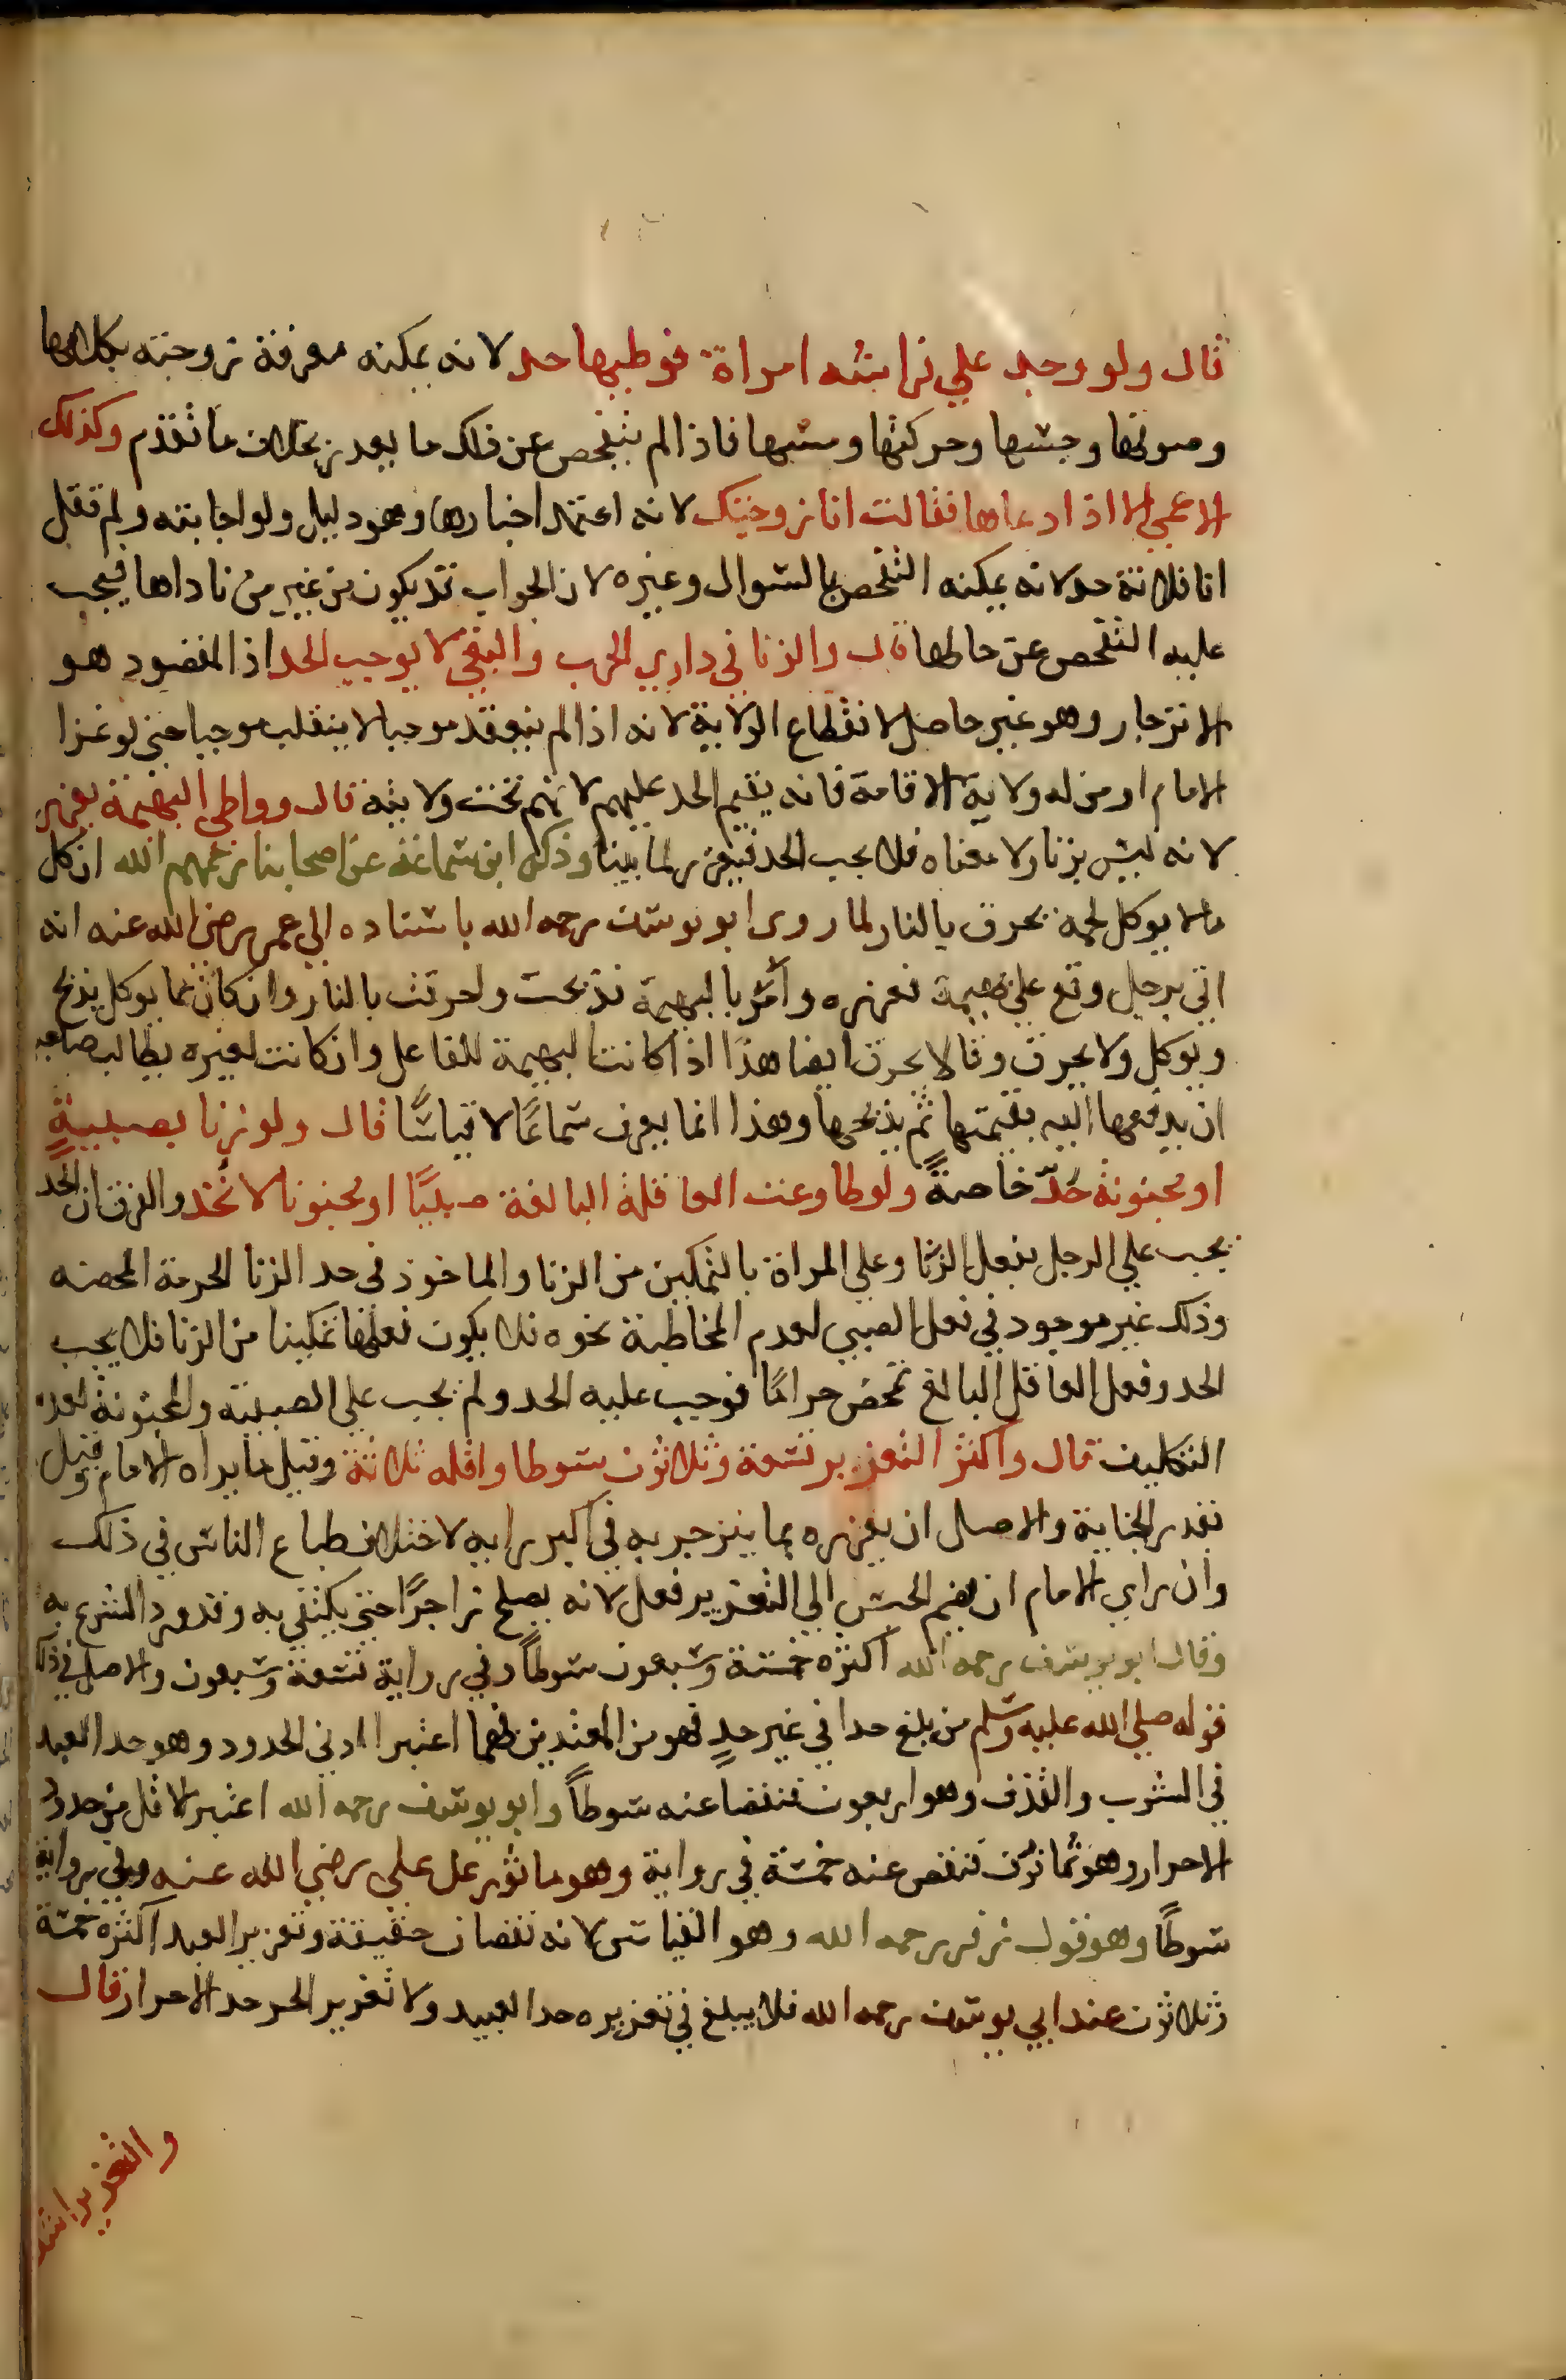 قال ولو وجد علي فراشه امراة فوطيها حد لانه يمكنه معرفة زوجته بكلامها
وصوتها وجسها وحركتها ومسها فاذا لم يتفحص عن ذلك ما يعذر بخلاف ما تقدم وكذلك
الاعمي الا اذا دعاها فقالت انا زوجتك لانه اعتمد اخبارها وهو دليل ولو اجابته ولم تقل
انا فلانة حد لانه يمكنه التفحص بالسوال وغيره لان الجواب قد يكون من غير من ناداها فيجب
عليه التفحص عن حالها قال والزنا في داري الحرب والبغي لا يوجب الحد اذ المقصود هو
الانزجار وهو غير حاصل لانقطاع الولاية لانه اذا لم ينعقد موجبا لا ينقلب موجبا حتي لو غزا
الامام او من له ولاية الاقامة فانه يقيم الحد عليهم لانهم تحت ولايته قال وواطي البهيمة يعزر
لانه ليس بزنا ولا معناه فلا يجب الحد فيعزر لما بينا وذكر ابن سماعة عن اصحابنا رحمهم الله ان كل
مالا يوكل لحمه يحرق بالنار لما روى ابو يوسف رحمه الله باسناده الي عمر رضي الله عنه انه
اتي برجل وقع علي بهيمة فعزره وامر بالبهيمة فذبحت واحرقت بالنار وان كان مما يوكل يذبح
ويوكل ولا يحرق وقالا يحرق ايضا هذا اذا كانت البهيمة للفاعل وان كانت لغيره يطالب صاحبه
ان يدفعها اليه بقيمتها ثم يذبحها وهذا انما يعرف سماعًا لا قياسًا قال ولو زنا بصبيةٍ
او مجنونة حُدّ خاصةً ولو طاوعت العاقلة البالغة صبيًا او مجنونا لا تُحد والفرق ان الحد
يجب علي الرجل بفعل الزنا وعلي المراة بالتمكين من الزنا والماخوذ في حد الزنا الحرمة المحصنه
وذلك غير موجود في فعل الصبي لعدم المخاطبة نحوه فلا يكون فعلها تمكينا من الزنا فلا يجب
الحد وفعل العاقل البالغ تمحض حرامًا فوجب عليه الحد ولم يجب علي الصبية والمجنونة لعدم
التكليف قال واكثر التعزير تسعة وثلاثون سوطا واقله ثلاثة وقيل ما يراه الامام وقيل
بقدر الجناية والاصل ان يعزره بما ينزجر به في اكبر رايه لاختلاف طباع الناس في ذلك
وان راي الامام ان يضم الحبس الي التعزير فعل لانه يصلح زاجرًا حتي يكتفي به وقد ورد الشرع به
وقال ابو يوسف رحمه الله اكثره خمسة وسبعون سوطاً وفي رواية تسعة وسبعون والاصل في ذلك
قوله صلي الله عليه وسلم من بلغ حدا في غير حدٍ فهو من المعتدين فهما اعتبرا ادني الحدود وهو حد العبد
في الشرب والقذف وهو اربعون فنقصا عنه سوطاً وابو يوسف رحمه الله اعتبر الاقل من حدود
الاحرار وهو ثمانون فنقص عنه خمسة في رواية وهو ماثور عن علي رضي الله عنه وفي رواية
سوطًا وهو قول زفر رحمه الله وهو القياس لانه نقصان حقيقة وتعزير العبد اكثره خمسة
وثلاثون عند ابي يوسف رحمه الله فلا يبلغ في تعزيره حد العبيد ولا تعزير الحر حد الاحرار قال
والتعزير اشد